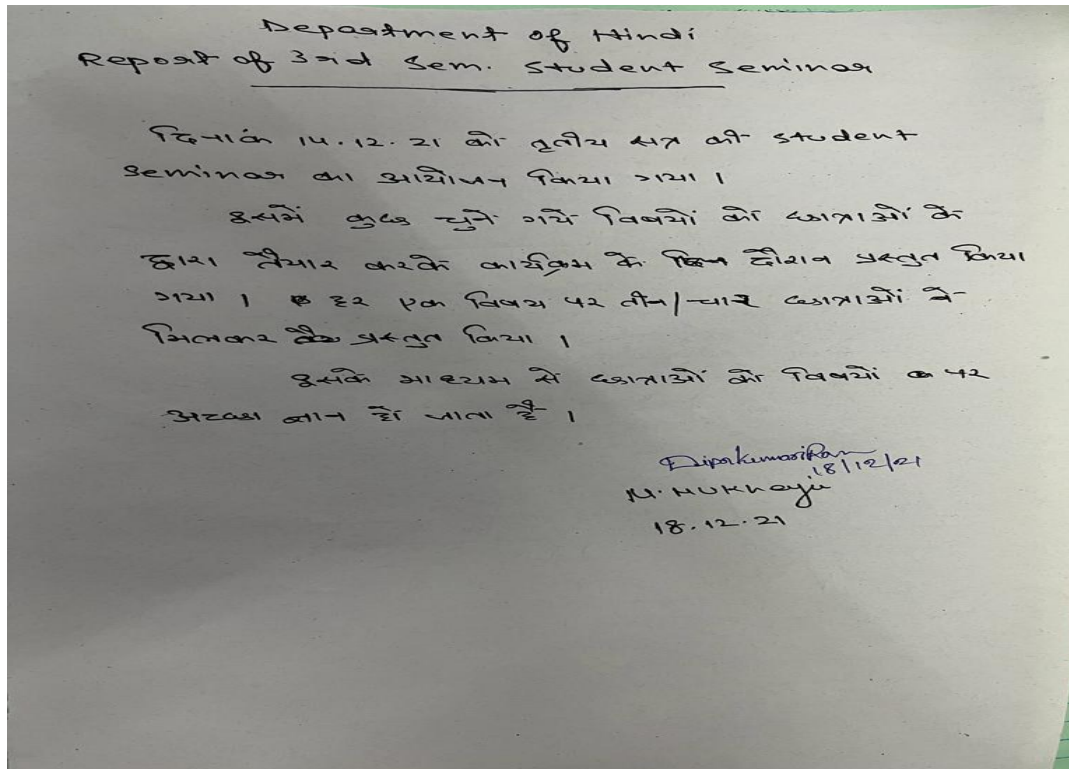 Department of Hindi
Report of 3rd Sem. Student Seminar
दिनांक 14.12.21 को तृतीय सत्र की student
seminar का आयोजन किया गया ।
इसमें कुछ चुने गये विषयों को छात्राओं के
द्वारा तैयार करके कार्यक्रम के दौरान प्रस्तुत किया
गया । हर एक विषय पर तीन/चार छात्राओं ने
मिलकर प्रस्तुत किया ।
इसके माध्यम से छात्राओं को विषयों पर
अच्छा ज्ञान हो जाता है ।
18/12/21
M. Mukherjee
18.12.21